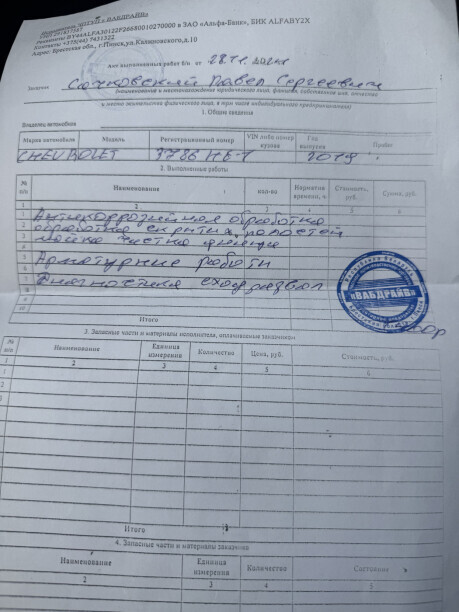 «ВАБДРАЙВ»
BY44ALFA30122F26680010270000 в ЗАО «Альфа-Банк», БИК ALFABY2X
Контакты +375(44) 7431322
Адрес: Брестская обл., г.Пинск, ул.Калиновского, д.10
Акт выполненных работ б/н от 28.11.
Заказчик Сачковский Павел Сергеевич
(наименование и местонахождение юридического лица, фамилия, собственное имя, отчество
и место жительства физического лица, в том числе индивидуального предпринимателя)
1. Общие сведения
Владелец автомобиля
Марка автомобиля Модель Регистрационный номер VIN либо номер кузова Год выпуска Пробег
CHEVROLET 3786 НВ-1 2019
2. Выполненные работы
№ п/п Наименование кол-во Норматив времени, н Стоимость, руб. Сумма, руб.
1 2 3 4 5 6
Антикоррозийная обработка
обработка скрытых полостей
мойка чистка днища
Арматурные работы
Диагностика сход развал
«ВАБДРАЙВ»
Итого
3. Запасные части и материалы исполнителя, оплачиваемые заказчиком
№ п/п Наименование Единица измерения Количество Цена, руб. Стоимость, руб.
1 2 3 4 5 6
Итого
4. Запасные части и материалы заказчика
Наименование Единица измерения Количество Состояние
2 3 4 5